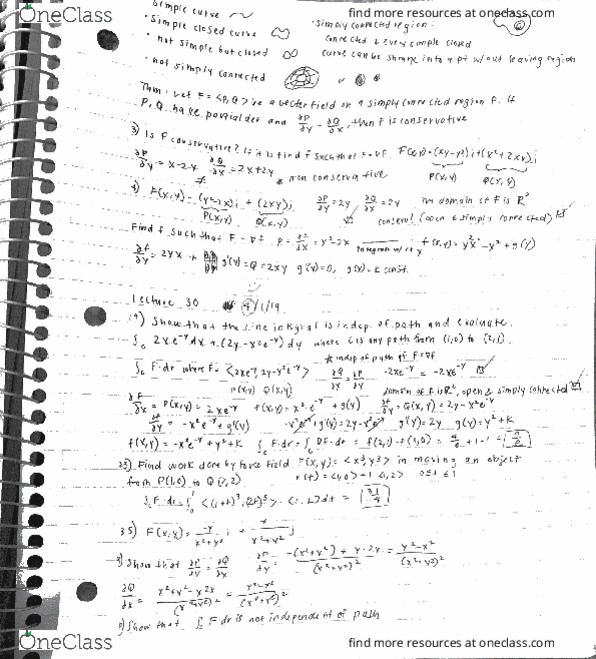 OneClass find more resources at oneclass.com
Simple curve
• Simple closed curve
• not simple but closed
• not simply connected
• Simply connected region:
connected & every simple closed
curve can be shrunk into a pt w/out leaving region
Thm: Let F = <P,Q> be a vector field on a simply connected region. If
P, Q have partial der and ∂P/∂y = ∂Q/∂x, then F is conservative
3) Is F conservative? If it is find f such that F = ∇f. F(x,y) = (xy-y²)i + (x²+2xy)j
∂P/∂y = x-2y ∂Q/∂x = 2x+2y * non conservative P(x,y) Q(x,y)
F(x,y) = (y²-2x)i + (2xy)j ∂P/∂y = 2y ∂Q/∂x = 2y domain of F is R²
P(x,y) Q(x,y) (open & simply connected)
Find f such that F = ∇f P = ∂f/∂x = y²-2x f(x,y) = y²x - x² + g(y)
∂f/∂y = 2yx + g'(y) = Q = 2xy g'(y) = 0, g(y) = k const.
Lecture 30 4/1/19
19) Show that the line integral is indep. of path and evaluate.
∫c 2xe^-y dx + (2y - x²e^-y) dy where C is any path from (1,0) to (2,1).
* indep of path if F = ∇f
∫c F·dr where F = <2xe^-y, 2y-x²e^-y> ∂Q/∂x = ∂P/∂y -2xe^-y = -2xe^-y
P(x,y) Q(x,y) domain of F is R², open & simply connected
∂f/∂x = P(x,y) = 2xe^-y f(x,y) = x²e^-y + g(y) ∂f/∂y = Q(x,y) = 2y - x²e^-y
∂f/∂y = -x²e^-y + g'(y) -x²e^-y + g'(y) = 2y - x²e^-y g'(y) = 2y g(y) = y² + K
f(x,y) = -x²e^-y + y² + K ∫c F·dr = ∫c ∇f·dr = f(2,1) - f(1,0) = 4/e + 1 - 1 = 4/e
23) Find work done by force field F(x,y) = <x³, y³> in moving an object
from P(1,0) to Q(2,2) r(t) = <1,0> + t<1,2> 0≤t≤1
∫c F·dr = ∫ <(1+t)³, (2t)³> · <1,2> dt =
35) F(x,y) = -y/(x²+y²) i + x/(x²+y²) j
a) Show that ∂P/∂y = ∂Q/∂x ∂P/∂y = (-(x²+y²) + y·2y)/(x²+y²)² = (y²-x²)/(x²+y²)²
∂Q/∂x = (x²+y²-x·2x)/(x²+y²)² = (y²-x²)/(x²+y²)²
b) Show that ∫c F·dr is not independent of path
OneClass find more resources at oneclass.com